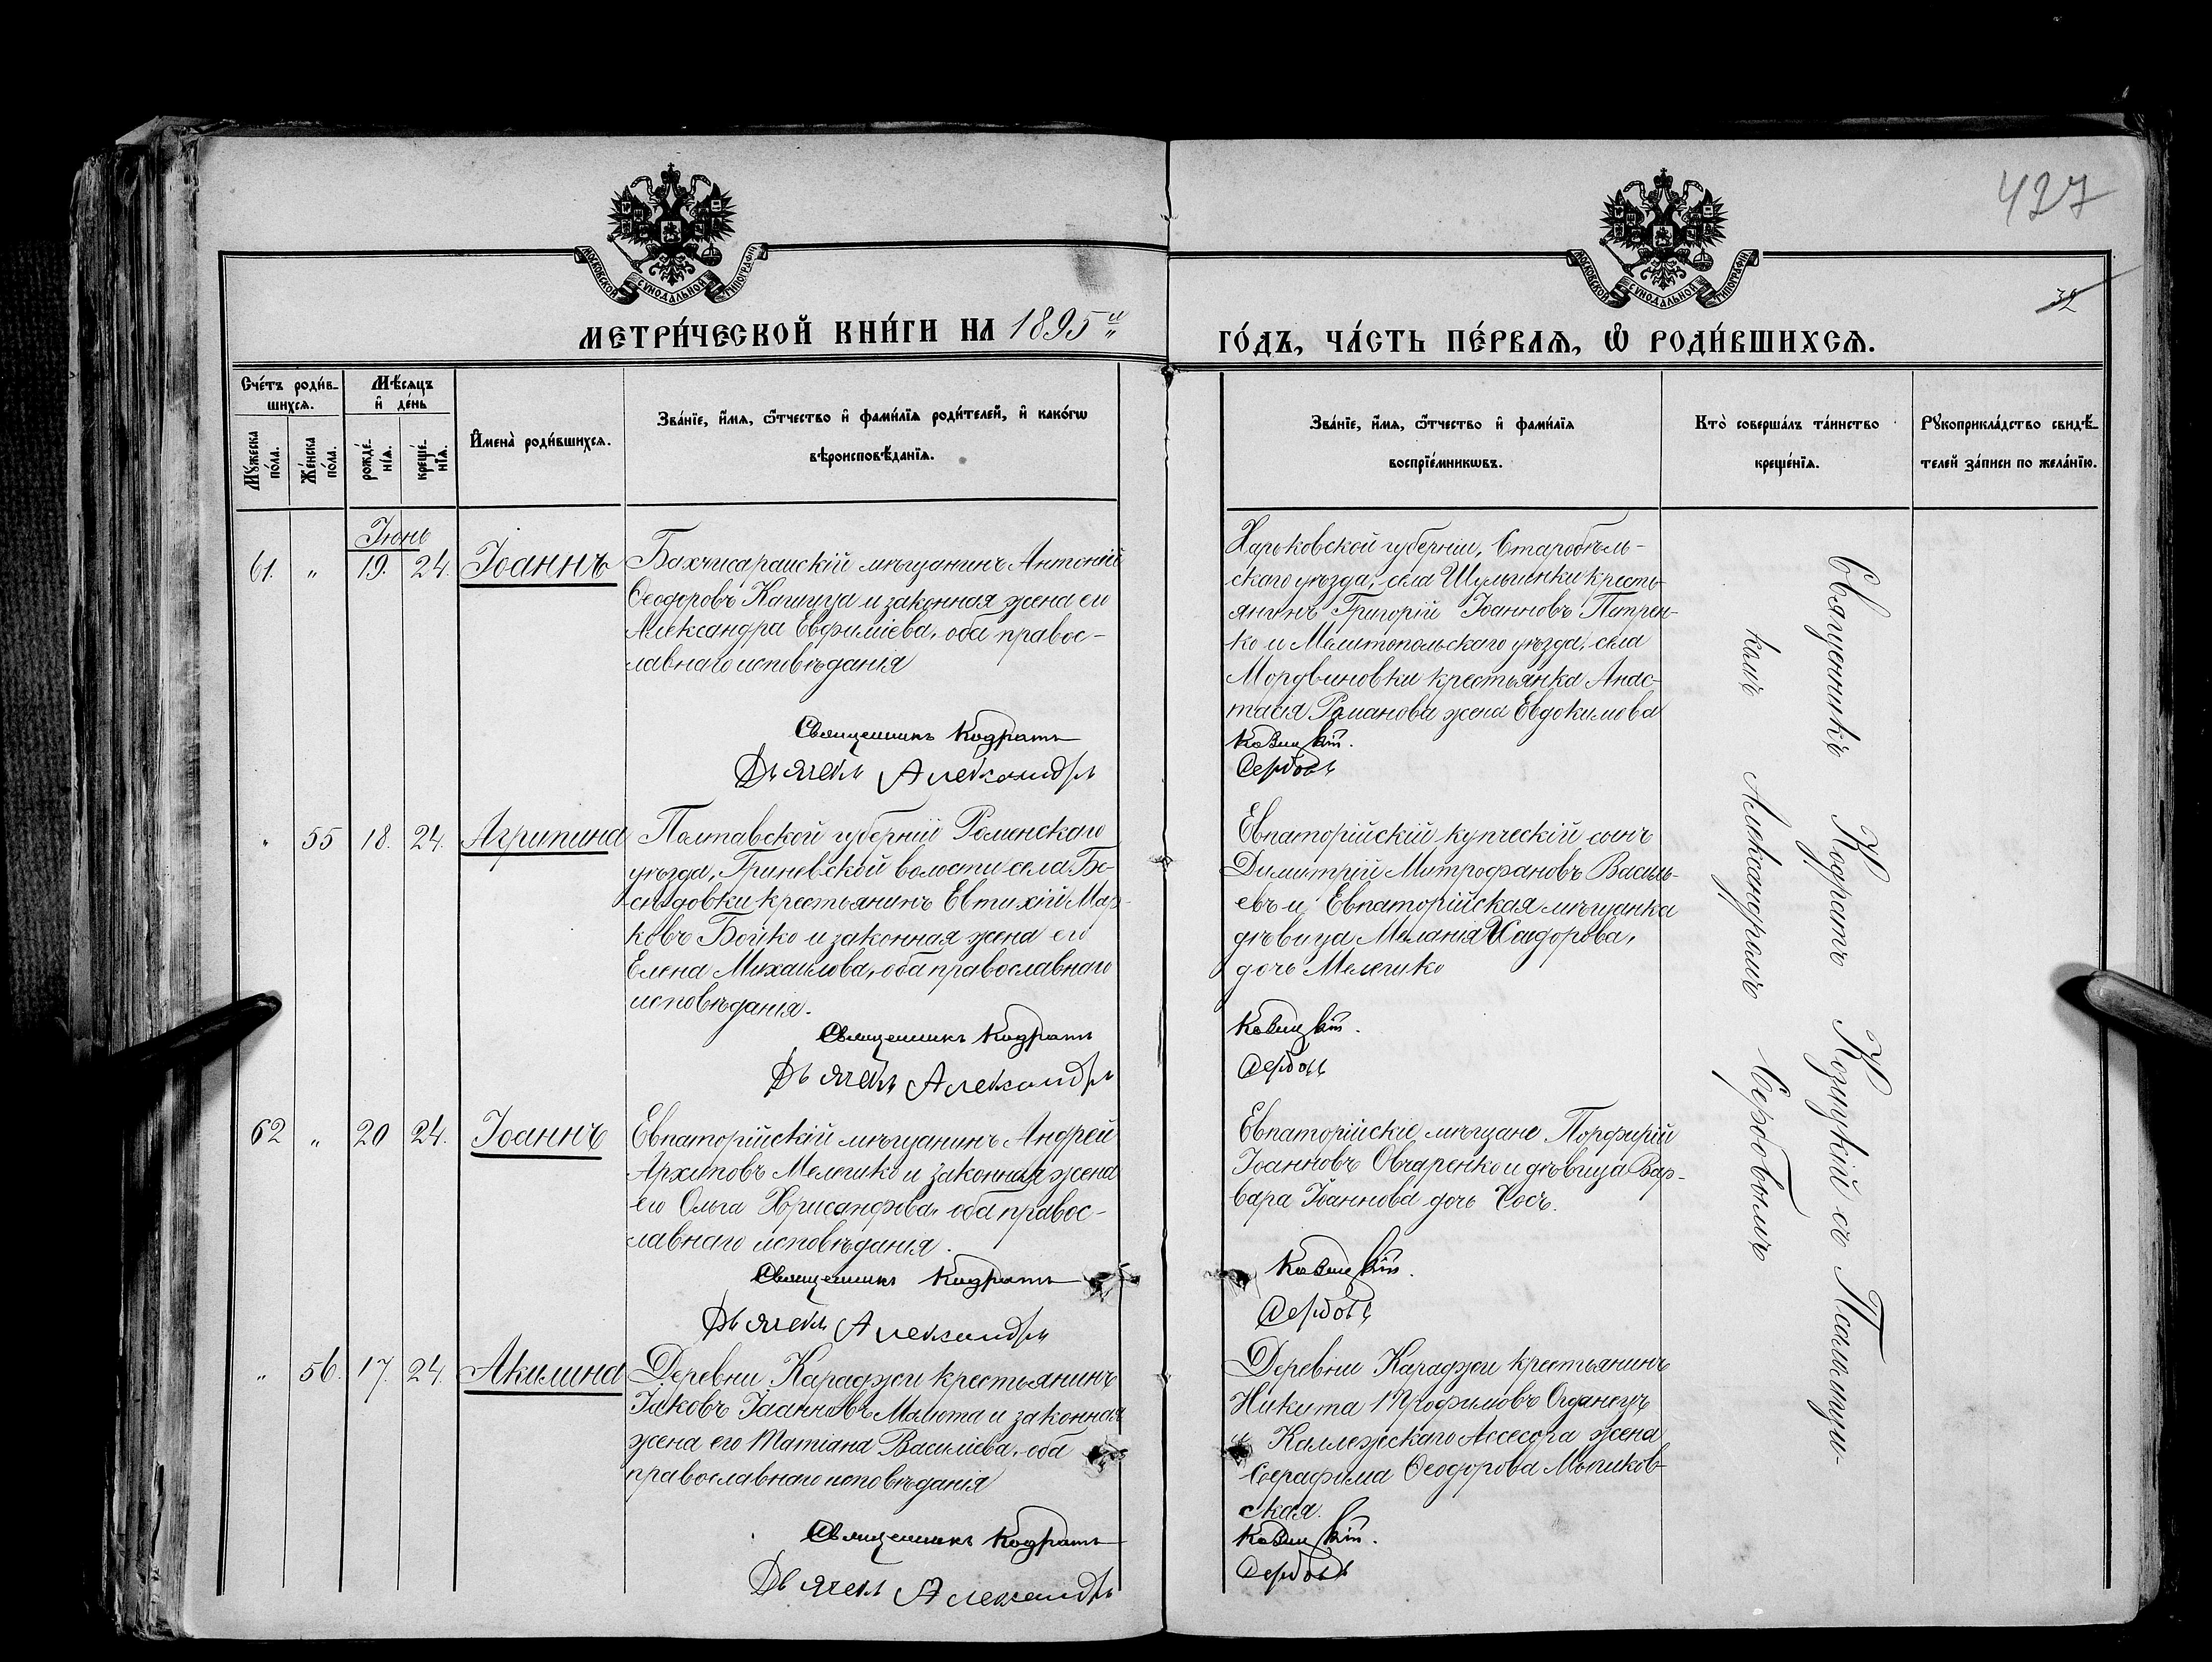 427
32
МОСКОВСКОЙ СѴНОДАЛЬНОЙ ТИПОГРАФІИ
МОСКОВСКОЙ СѴНОДАЛЬНОЙ ТИПОГРАФІИ
МЕТРИ́ЧЕСКОЙ КНИ́ГИ НА 1895й
ГО́ДЪ, ЧА́СТЬ ПЕ́РВАѦ, Ѡ҆ РОДИ́ВШИХСѦ.
Сче́тъ роди́в-
шихсѧ.
Мꙋ́жеска по́ла.
Же́нска по́ла.
Мѣ́сѧцъ
и҆ де́нь
рожде́-
нїѧ.
креще́-
нїѧ.
И҆мена̀ роди́вшихсѧ.
Зва́нїе, и҆́мѧ, ѻ҆́тчество и҆ фами́лїѧ роди́телей, и҆ како́гѡ
вѣроисповѣ́данїѧ.
Зва́нїе, и҆́мѧ, ѻ҆́тчество и҆ фами́лїѧ
воспрїе́мникѡвъ.
Кто̀ соверша́лъ та́инство
креще́нїѧ.
Рꙋкоприкла́дство свидѣ́-
телей за́писи по жела́нїю.
Іюнь
61. " 19. 24. Іоаннъ
Бахчисарайскій мѣщанинъ Антоній
Ѳеодоровъ Кашуца и законная жена его
Александра Евфиміева, оба правос-
лавнаго исповѣданія
Священникъ Кодратъ
Дьячекъ Александръ
Харьковской губерніи, Старобѣль-
скаго уѣзда, села Шульгинки кресть-
янинъ Григорій Іоанновъ Питрен-
ко и Мелитопольскаго уѣзда, села
Мордвиновки крестьянка Анас-
тасія Романова жена Евдокимова
Сербовъ
" 55 18. 24. Агрипина
Полтавской губерніи Роменскаго
уѣзда, Гриневской волости села Бе-
сѣдовки крестьянинъ Евтихій Мар-
ковъ Бойко и законная жена его
Елена Михаилова, оба православнаго
исповѣданія.
Священникъ Кодратъ
Дьячекъ Александръ
Евпаторійскій купческій сынъ
Димитрій Митрофановъ Василь-
евъ и Евпаторійская мѣщанка
дѣвица Меланія Исидорова,
дочь Мелешко
Сербовъ
62 " 20 24. Іоаннъ
Евпаторійскій мѣщанинъ Андрей
Архиповъ Мелешко и законная жена
его Ольга Хрисанфова, оба правос-
лавнаго исповѣданія.
Священникъ Кодратъ
Дьячекъ Александръ
Евпаторійскіе мѣщане Порфирій
Іоанновъ Овчаренко и дѣвица Вар-
вара Іоаннова дочь
Сербовъ
" 56. 17. 24. Акилина
Деревни Караджи крестьянинъ
Іаковъ Іоанновъ Малюта и законная
жена его Татіана Василіева, оба
православнаго исповѣданія
Священникъ Кодратъ
Дьячекъ Александръ
Деревни Караджи крестьянинъ
Никита Трофимовъ
и Коллежскаго Ассесора жена
Серафима Ѳеодорова
ская.
Сербовъ
Священникъ Кодратъ съ Псаломщи-
комъ Александромъ Сербовымъ